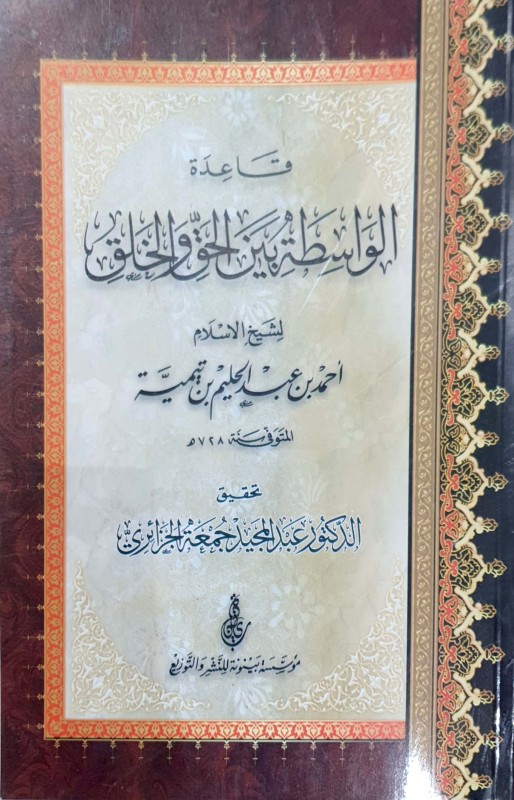 قاعدة
الواسطة بين الحق والخلق
لشيخ الاسلام
أحمد بن عبد الحليم بن تيمية
المتوفى سنة ٧٢٨ھ
تحقيق
الدكتور عبد المجيد جمعة الجزائري
مؤسسة بينونة للنشر والتوزيع